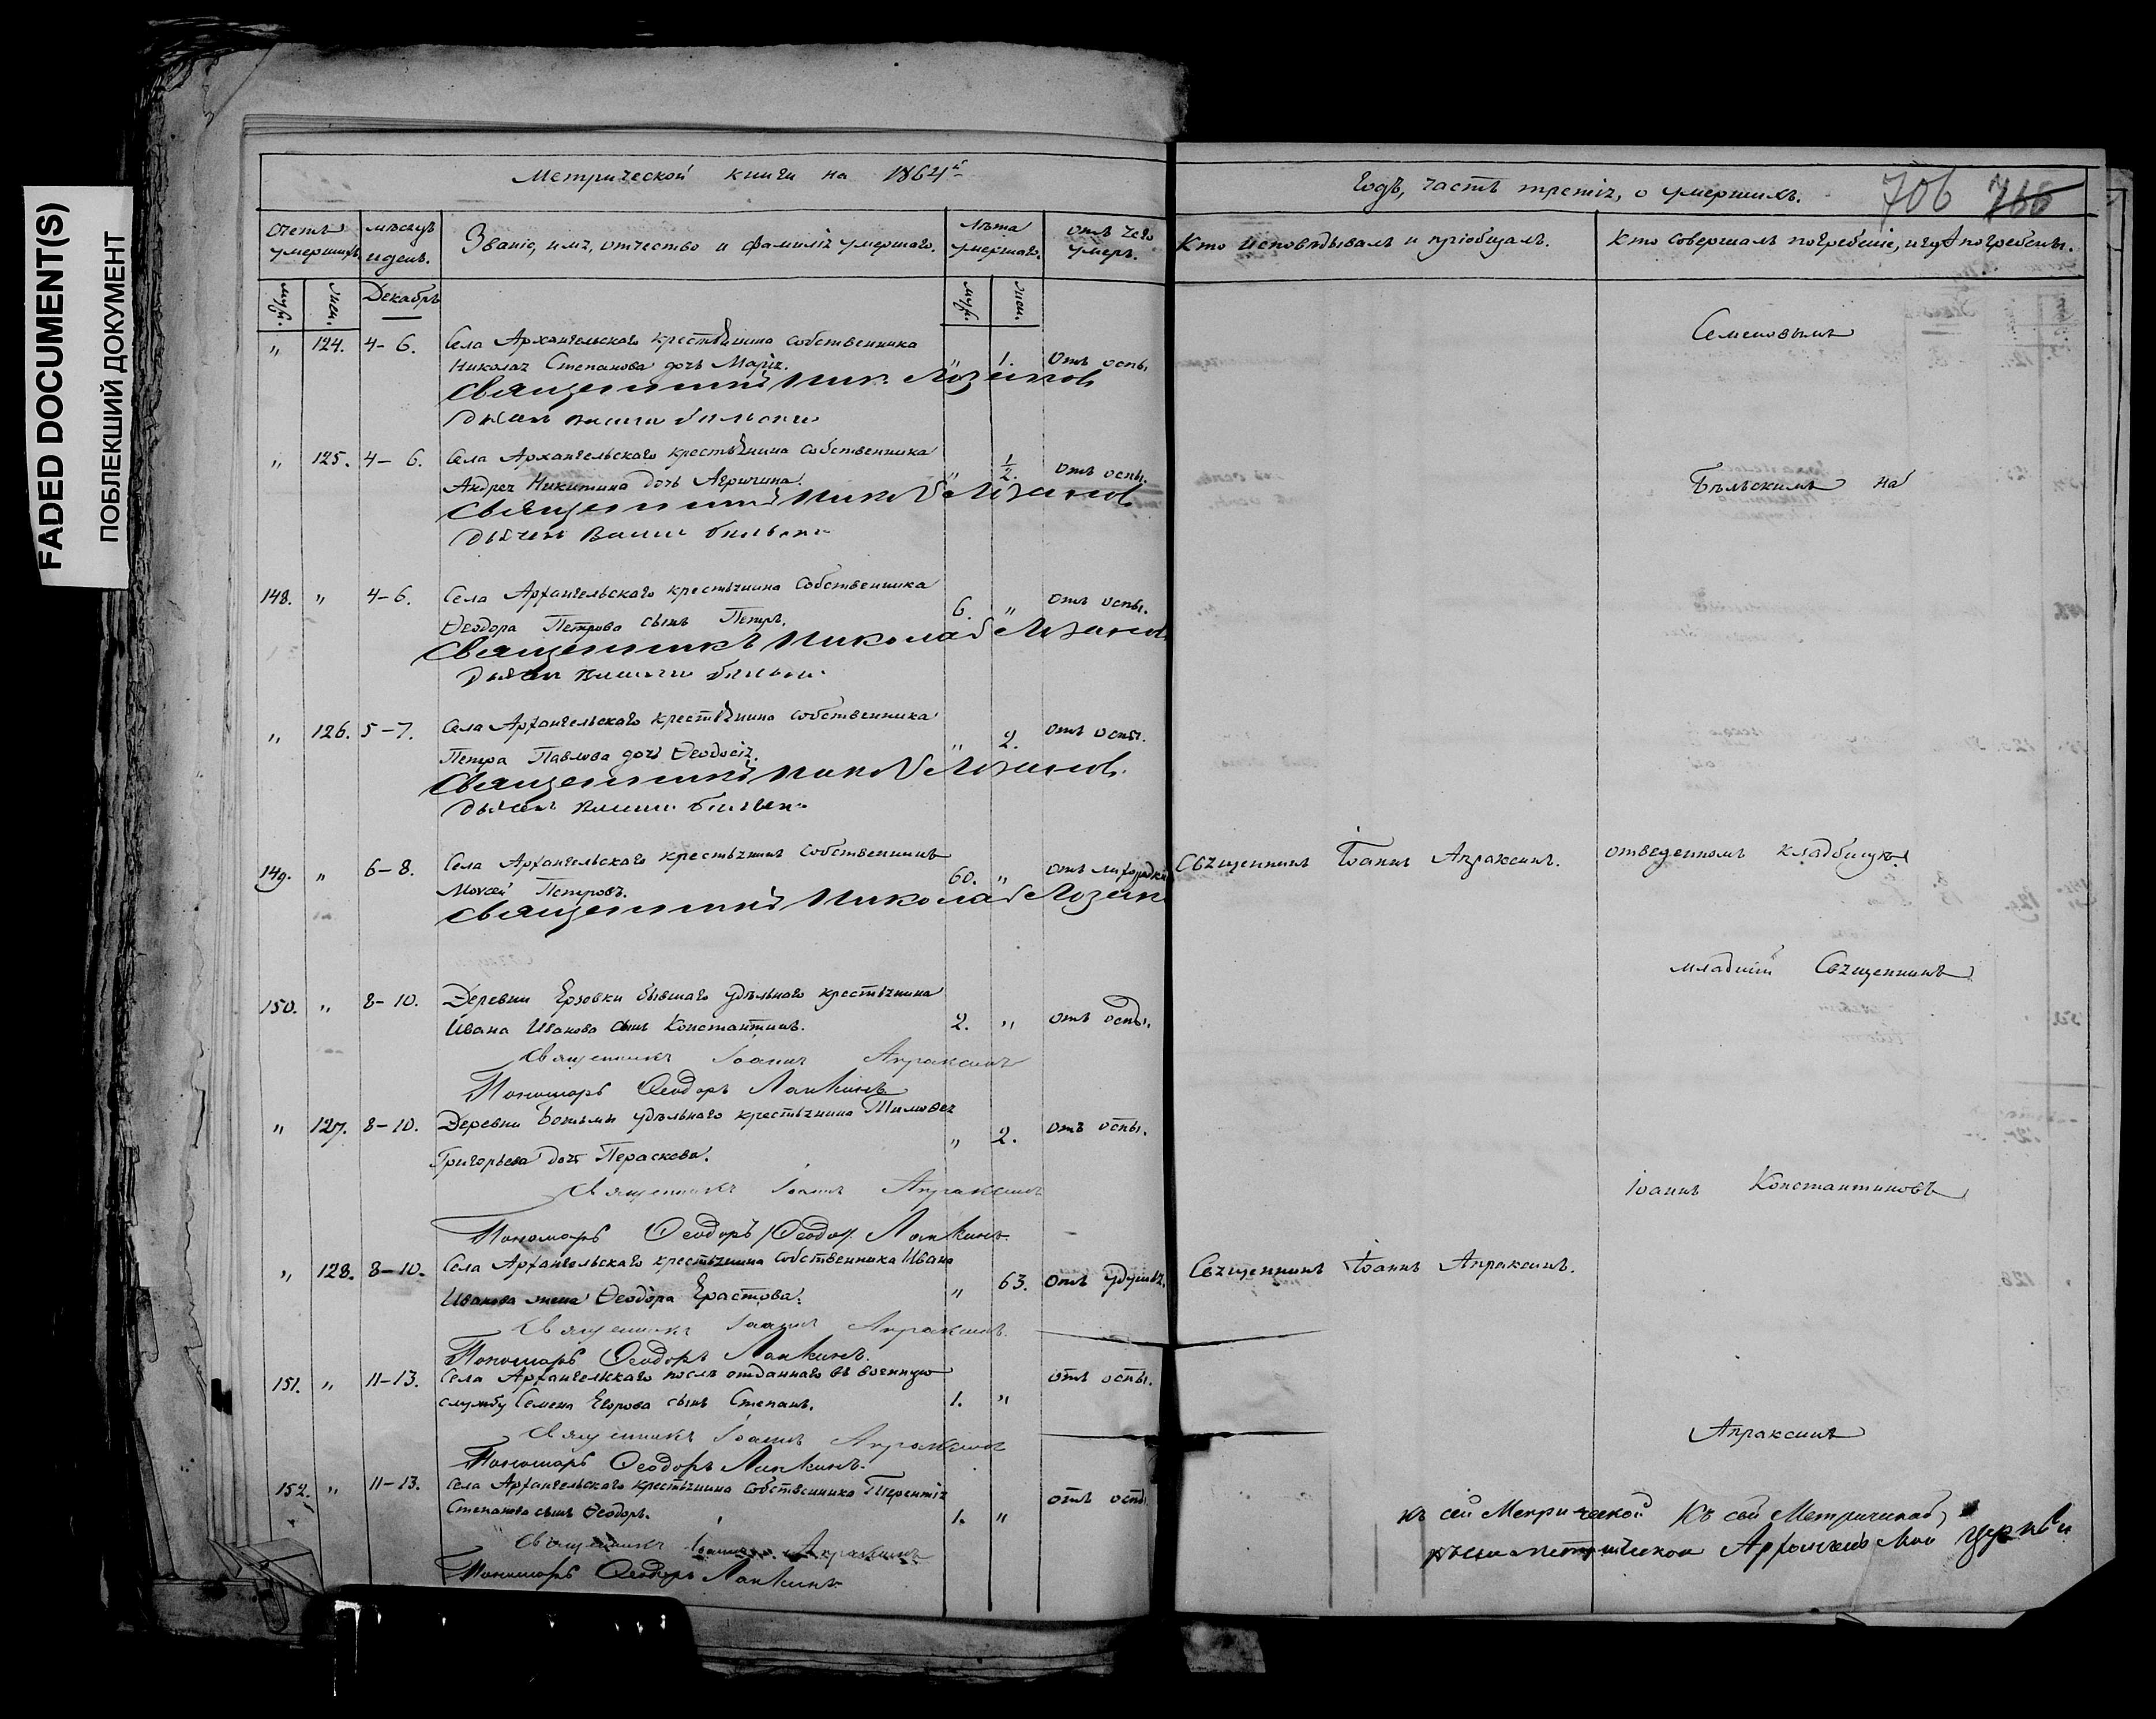 FADED DOCUMENT(S)
ПОБЛЕКШИЙ ДОКУМЕНТ
Метрической книги на 1864й
Годъ, часть третія, о умершихъ.
706 766
Счетъ умершихъ.
мѣсяцъ и день.
Званіе, имя, отчество и фамилія умершаго.
Лѣта умершаго.
отъ чего умеръ.
Кто исповѣдывалъ и пріобщалъ.
Кто совершалъ погребеніе, и гдѣ погребены.
муж. жен. Декабрь муж. жен.
„ 124. 4-6. Села Архангельскаго крестьянина собственника
Николая Степанова дочь Марія. „ 1. Отъ оспы.
Семеновымъ
Священникъ Ник. Лозановъ
„ 125. 4-6. Села Архангельскаго крестьянина собственника
Андрея Никитина дочь „ 1/2. отъ оспы.
Бѣльскимъ на
Священникъ Никол
148. „ 4-6. Села Архангельскаго крестьянина собственника
Ѳеодора Петрова сынъ Петръ. 6. „ отъ оспы.
Священникъ Николай
„ 126. 5-7. Села Архангельскаго крестьянина собственника
Петра Павлова дочь Ѳеодосія. „ 2. отъ оспы.
Священникъ
149. „ 6-8. Села Архангельскаго крестьянинъ собственникъ
Моѵсей Петровъ. 60. „ отъ лихорадки
Священникъ Іоаннъ Апраксинъ.
отведенномъ кладбищѣ.
Священникъ Николай
младшій Священникъ
150. „ 8-10. Деревни Ерзовки бывшаго удѣльнаго крестьянина
Ивана Иванова сынъ Константинъ. 2. „ отъ оспы.
Священникъ Іоаннъ Апраксинъ
Пономарь Ѳеодоръ Лапкинъ
„ 127. 8-10. Деревни удѣльнаго крестьянина Тимоѳея
Григорьева дочь Параскева. „ 2. отъ оспы.
Священникъ Іоаннъ Апраксинъ
Іоаннъ Константиновъ
Пономарь Ѳеодоръ Ѳеодор. Лапкинъ
„ 128. 8-10. Села Архангельскаго крестьянина собственника Ивана
Иванова жена Ѳеодора Ерастова. „ 63. отъ удушья.
Священникъ Іоаннъ Апраксинъ.
Священникъ Іоаннъ Апраксинъ.
Пономарь Ѳеодоръ Лапкинъ.
151. „ 11-13. Села Архангельскаго послѣ отданнаго въ военную
службу Семена Егорова сынъ Степанъ. 1. „ отъ оспы.
Священникъ Іоаннъ Апраксинъ
Апраксинъ
Пономарь Ѳеодоръ Лапкинъ.
152. „ 11-13. Села Архангельскаго крестьянина собственника Терентія
Степанова сынъ Ѳеодоръ. 1. „ отъ оспы
Священникъ Іоаннъ Апраксинъ
Пономарь Ѳеодоръ Лапкинъ
къ сей Метрической Къ сей Метрической
къ сей метрической Архангельской церкви